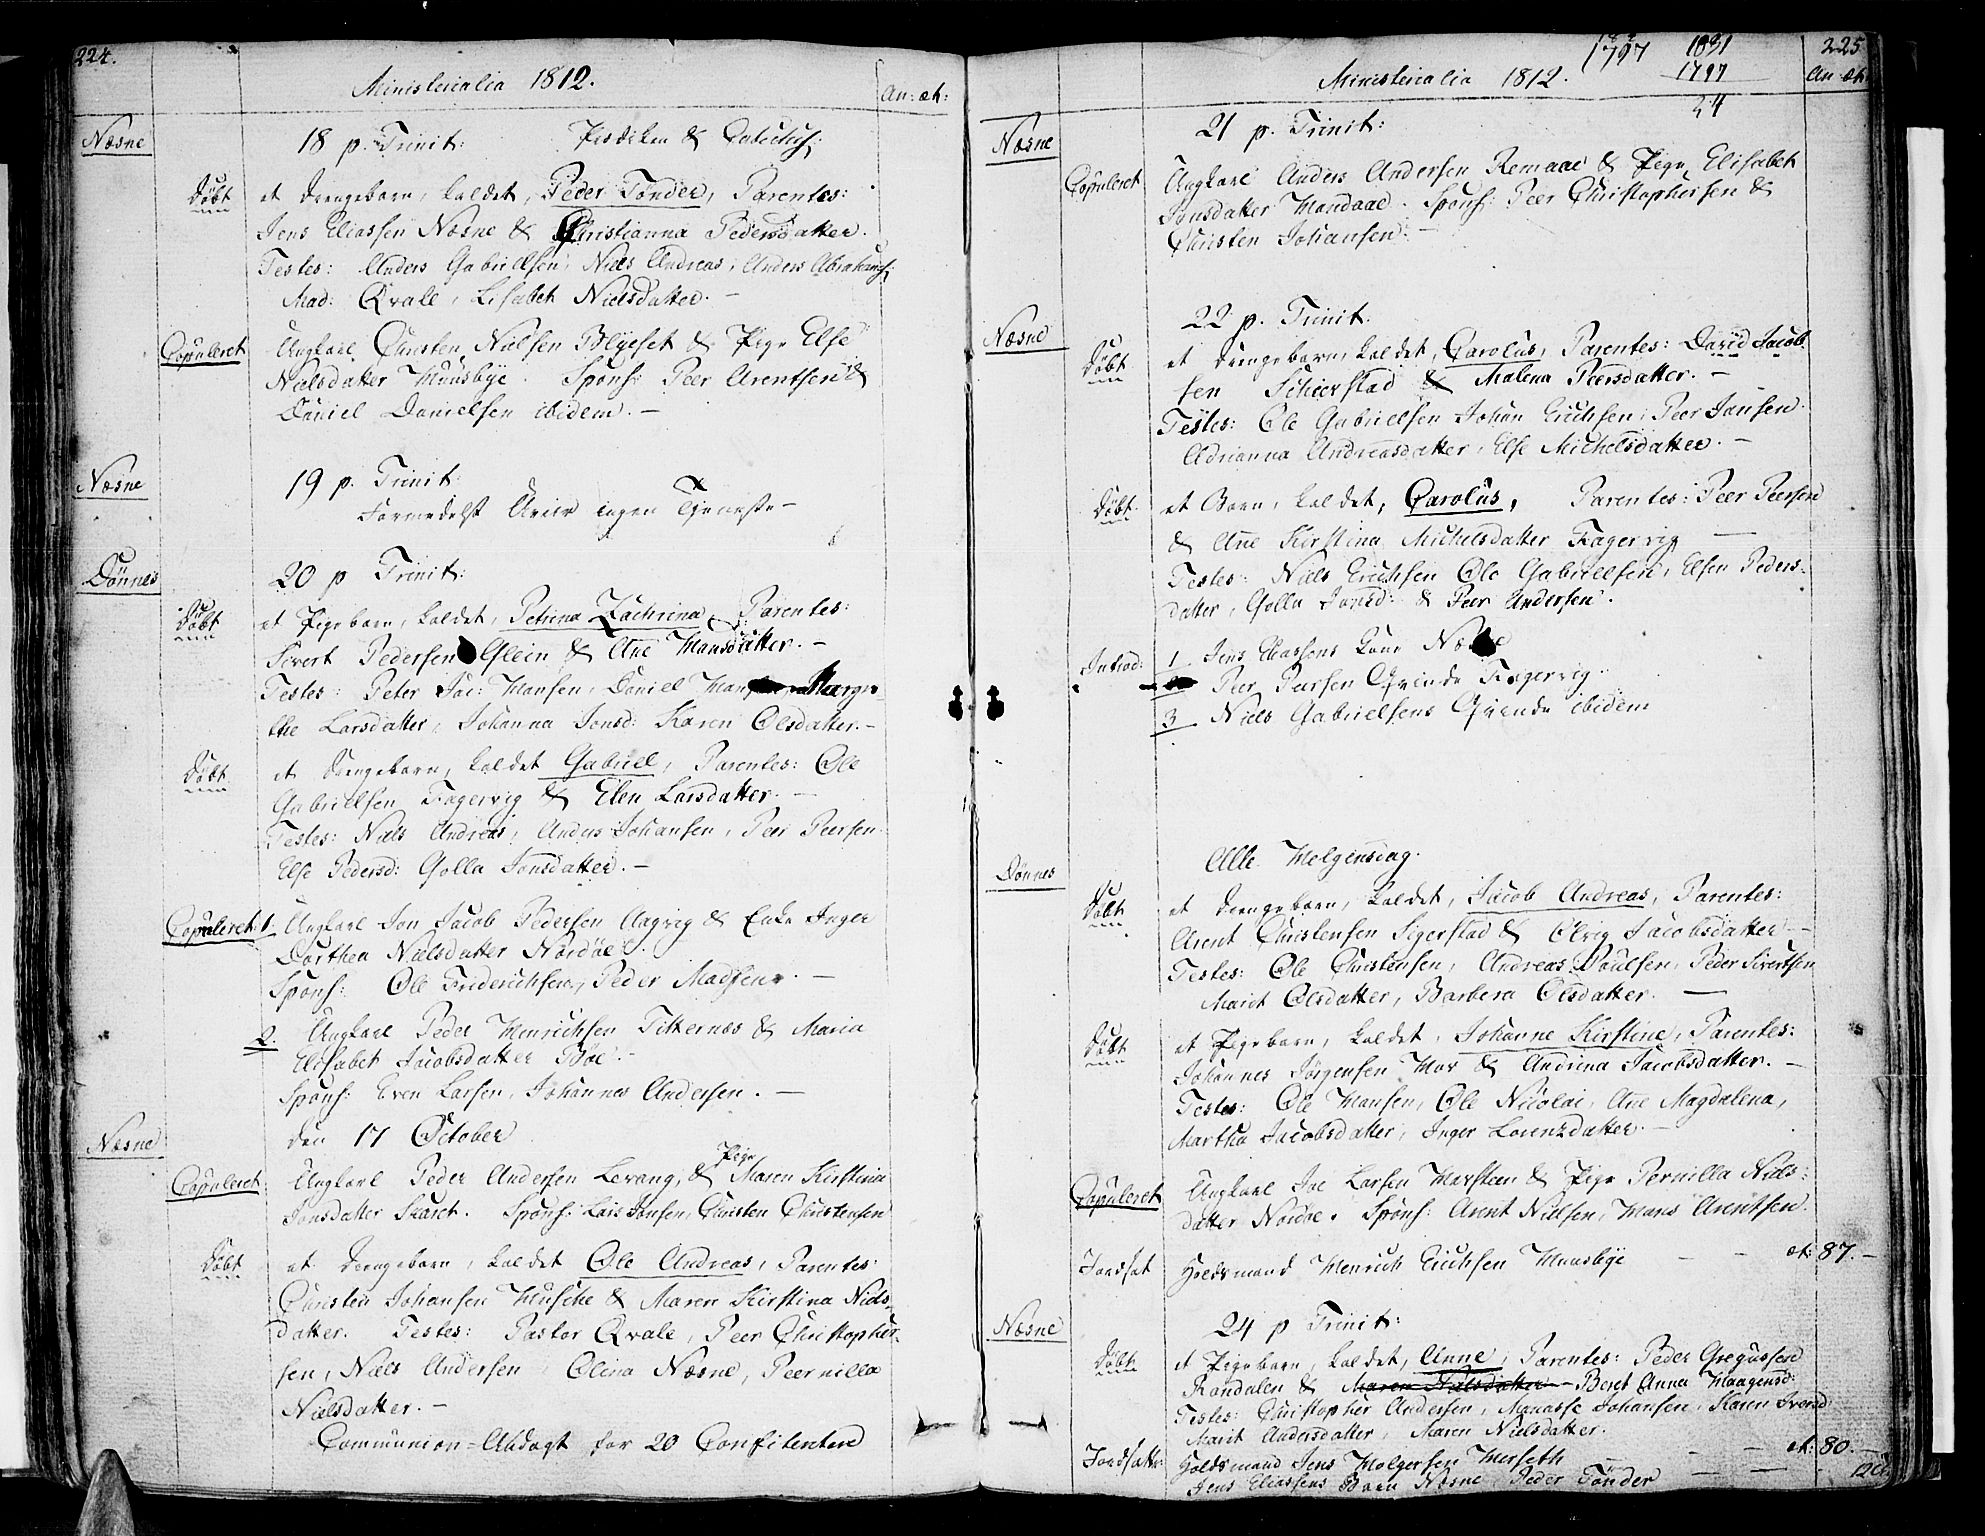 224.
Ministerialia 1812.
An: æt:
Næsne
18 p. Trinit:
Døbt
et Drengebarn, kaldet, Peder Tønder, Parentes:
Jens Eliassen Næsne & Christianna Pedersdatter.
Testes: Anders Gabrielsen, Niels Andreas, Anders Abrahams:
Mad: Qvale, Lisabet Nielsdatter. –
Copuleret
Ungkarl Christen Nielsen & Pige Else
Nielsdatter Huusbye. Spons: Peer Arentsen &
Daniel Danielsen ibidem. –
Næsne
19 p. Trinit:
Formedelst Uveir ingen Tjeneste –
Dönnes
20 p Trinit:
Døbt
et Pigebarn, kaldet, Petrina Zachrina, Parentes:
Sivert Pedersen Glein & Ane Hansdatter. –
Testes: Peter Jac: Hansen, Daniel Margre-
the Larsdatter, Johanna Jonsd: Karen Olsdatter. –
Døbt
et Drengebarn, kaldet Gabriel, Parentes: Ole
Gabrielsen Fagervig & Elen Larsdatter. –
Testes: Niels Andreas, Anders Johansen, Peer Peersen
Else Pedersd: Golla Jonsdatter. –
Copuleret: 1.
Ungkarl Jon Jacob Pedersen Aagvig & Enke Inger
Dorthea Nielsdatter Nordöe.
Spons: Ole Friderichsen, Peder Madsen. –
2.
Ungkarl Peder Henrichsen Titternæs & Maria
Elisabet Jacobsdatter Böe. –
Spons: Even Larsen, Johannes Andersen. –
Næsne
den 17 October
Copuleret
Ungkarl Peder Andersen Levang, & Pige Maren Kirstina
Jonsdatter Skaret. Spons: Lars Jonsen, Christen Christensen
Døbt
et Drengebarn, kaldet Ole Andreas, Parentes:
Christen Johansen Husche & Maren Kirstina Niels-
datter. Testes: Pastor Qvale, Peer Christopher-
sen, Niels Andersen Olina Næsne, Peernilla
Nielsdatter. –
Communion-Aldagt for 20 Confitenter
1797
1831
1797
34
225
Ministerialia 1812.
An æt
Næsne
21 p. Trinit:
Copuleret
Ungkarl Anders Andersen Remaae & Pige Elisabet
Jonsdatter Handaae. Spons: Peer Christophersen &
Christen Johansen. –
Næsne
22 p. Trinit.
Døbt
et Drengebarn, kaldet, Carolus, Parentes: David Jacob
sen Scheerstad & Malena Peersdatter. –
Testes: Ole Gabrielsen Johan Erichsen, Peer Jansen
Adrianna Andreasdatter, Else Michelsdatter. –
Døbt
et Barn, kaldet, Carolus, Parentes: Peer Peersen
& Ane Kirstina Michelsdatter Fagervig –
Testes: Niels Erichsen Ole Gabrielsen, Elsen Peders-
datter, Golla Jonsd: & Peer Andersen.
Introd:
1 Jens Eliassens Kone Næsne
Peer Peersen Qvinde Fagervig.
3 Niels Gabrielsens Qvinde ibidem
Dönnes
Alle Helgensdag.
Døbt
et Drengebarn, kaldet, Jacob Andreas, Parentes:
Arent Christensen Sigerstad & Olvig Jacobsdatter –
Testes: Ole Christensen, Andreas Poulsen, Peder Sivertsen
Marit Olsdatter, Barbera Olsdatter. –
Døbt
et Pigebarn, kaldet, Johanne Kirstine, Parentes:
Johannes Jörgensen Hov & Andrina Jacobsdatter. –
Testes: Ole Hansen, Ole Nicolai, Ane Magdalena,
Martha Jacobsdatter, Inger Lorenzdatter. –
Copuleret
Ungkarl Joe Larsen Havsteen & Pige Pernilla Niels-
datter Nordöe. Spons: Arent Nielsen, Hans Arentsen.
Jordsat
Holdsmand Henrich Erichsen Huusbye – – æt: 87. –
Næsne
24 p Trinit:
Døbt
et Pigebarn, kaldet, Anne, Parentes: Peder Gregussen
Randalen & Maren Nielsdatter – Beret Anna Haagensd:
Testes: Christopher Andersen, Manasse Johansen, Karen Iversd
Marit Andersdatter, Maren Nielsdatter.
Jordsatte
Holdsmand Jens Holgersen Herseth – – æt: 80. –
Jens Eliassens Barn Næsne Peder Tönder – –